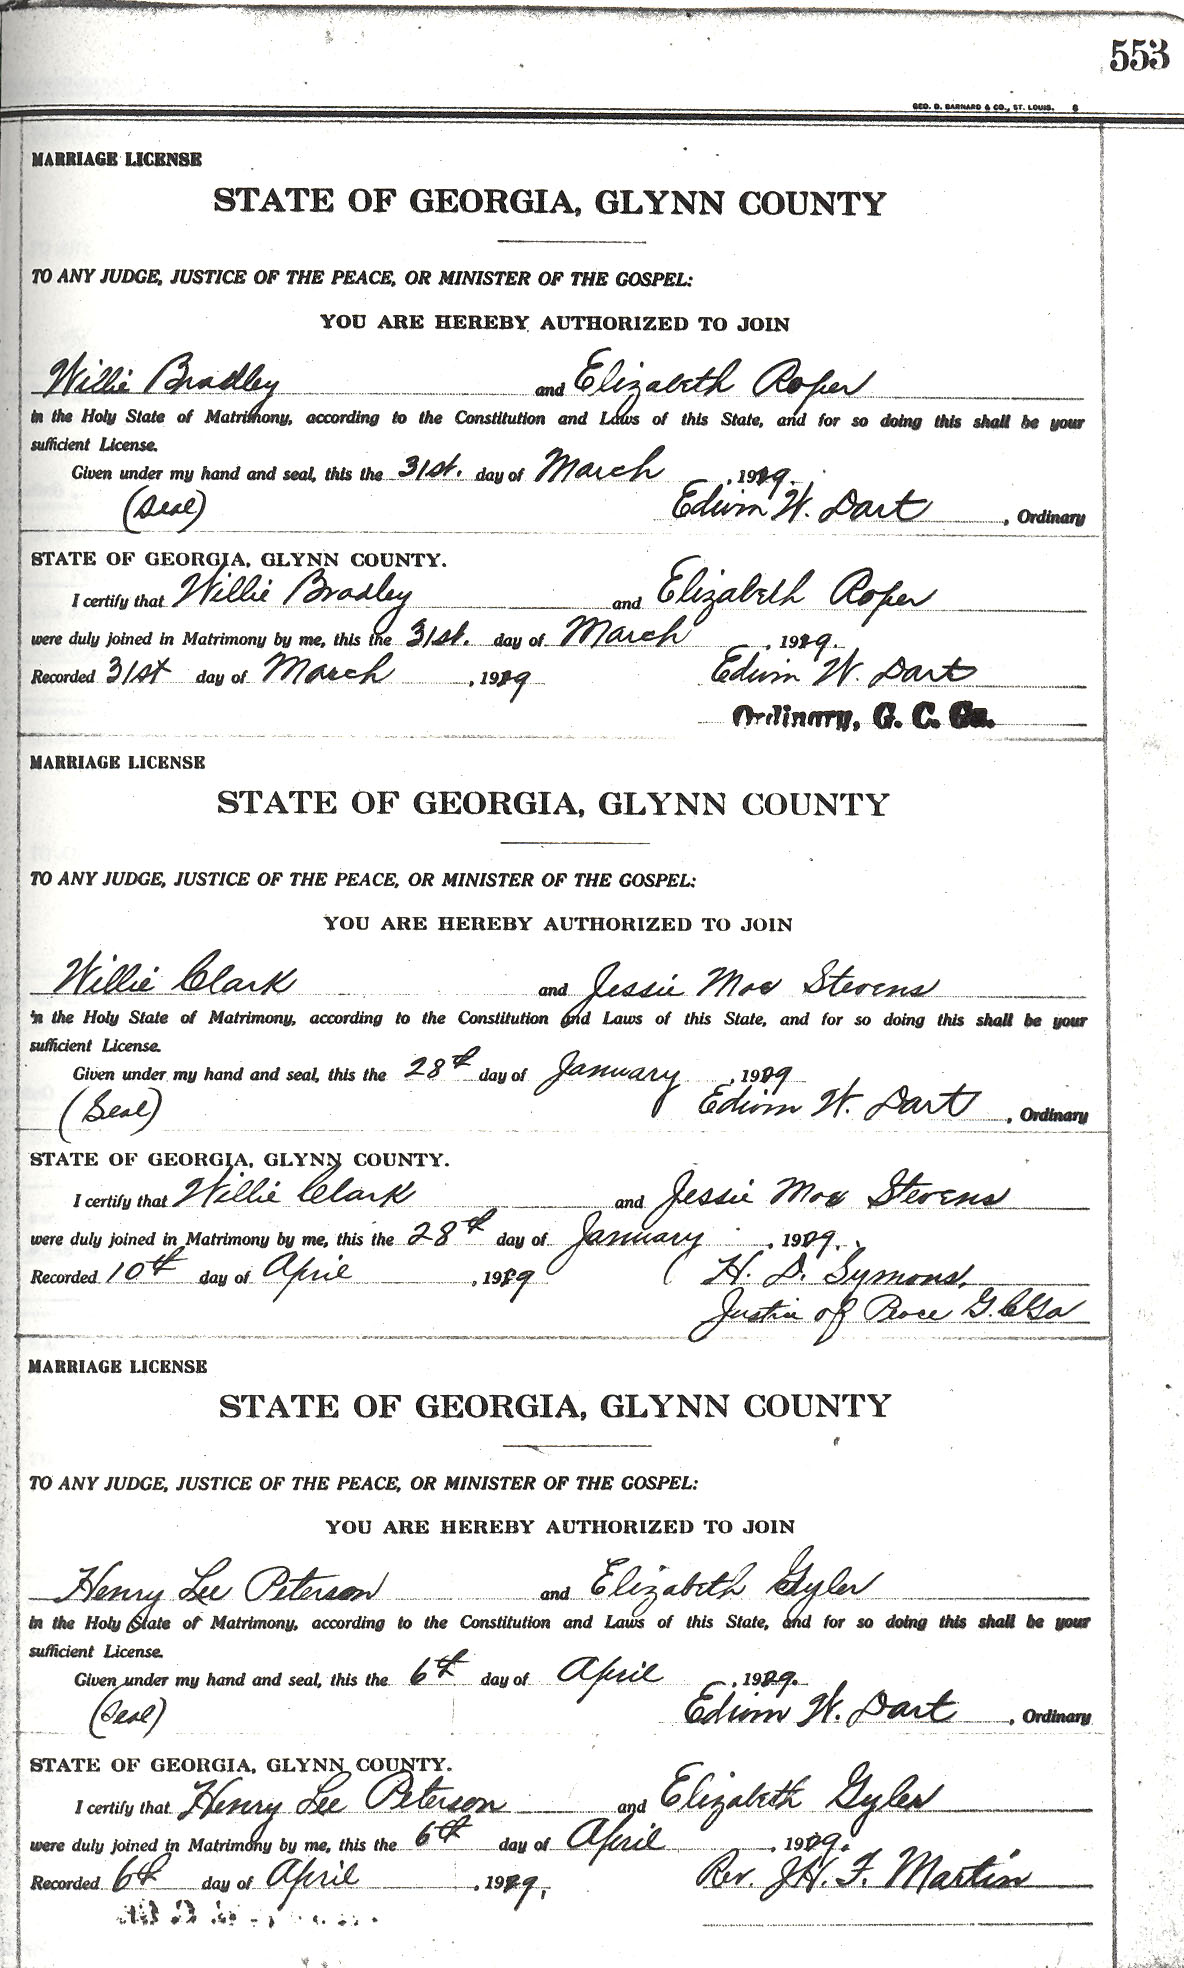 553
GEO. D. BARNARD & CO., ST. LOUIS. 6
MARRIAGE LICENSE
STATE OF GEORGIA, GLYNN COUNTY
TO ANY JUDGE, JUSTICE OF THE PEACE, OR MINISTER OF THE GOSPEL:
YOU ARE HEREBY AUTHORIZED TO JOIN
Willie Bradley and Elizabeth Roper
in the Holy State of Matrimony, according to the Constitution and Laws of this State, and for so doing this shall be your
sufficient License.
Given under my hand and seal, this the 31st. day of March, 1929.
(Seal) Edwin W. Dart, Ordinary
STATE OF GEORGIA, GLYNN COUNTY.
I certify that Willie Bradley and Elizabeth Roper
were duly joined in Matrimony by me, this the 31st. day of March, 1929.
Recorded 31st day of March, 1929 Edwin W. Dart
Ordinary, G. C. Ga.
MARRIAGE LICENSE
STATE OF GEORGIA, GLYNN COUNTY
TO ANY JUDGE, JUSTICE OF THE PEACE, OR MINISTER OF THE GOSPEL:
YOU ARE HEREBY AUTHORIZED TO JOIN
Willie Clark and Jessie Mae Stevens
in the Holy State of Matrimony, according to the Constitution and Laws of this State, and for so doing this shall be your
sufficient License.
Given under my hand and seal, this the 28th day of January, 1929
(Seal) Edwin W. Dart, Ordinary
STATE OF GEORGIA, GLYNN COUNTY.
I certify that Willie Clark and Jessie Mae Stevens
were duly joined in Matrimony by me, this the 28th day of January, 1929.
Recorded 10th day of April, 1929 H. D. Symons,
Justice of Peace G. C Ga
MARRIAGE LICENSE
STATE OF GEORGIA, GLYNN COUNTY
TO ANY JUDGE, JUSTICE OF THE PEACE, OR MINISTER OF THE GOSPEL:
YOU ARE HEREBY AUTHORIZED TO JOIN
Henry Lee Peterson and Elizabeth Gyler
in the Holy State of Matrimony, according to the Constitution and Laws of this State, and for so doing this shall be your
sufficient License.
Given under my hand and seal, this the 6th day of April, 1929.
(Seal) Edwin W. Dart, Ordinary
STATE OF GEORGIA, GLYNN COUNTY.
I certify that Henry Lee Peterson and Elizabeth Gyler
were duly joined in Matrimony by me, this the 6th day of April, 1929.
Recorded 6th day of April, 1929, Rev. J. H. F. Martin